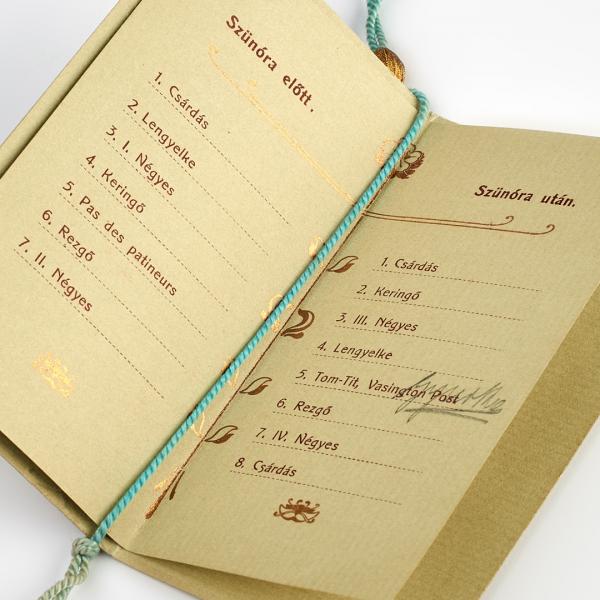 Szünóra előtt.
1. Csárdás
2. Lengyelke
3. I. Négyes
4. Keringő
5. Pas des patineurs
6. Rezgő
7. II. Négyes
Szünóra után.
1. Csárdás
2. Keringő
3. III. Négyes
4. Lengyelke
5. Tom-Tit, Vasington Post
6. Rezgő
7. IV. Négyes
8. Csárdás